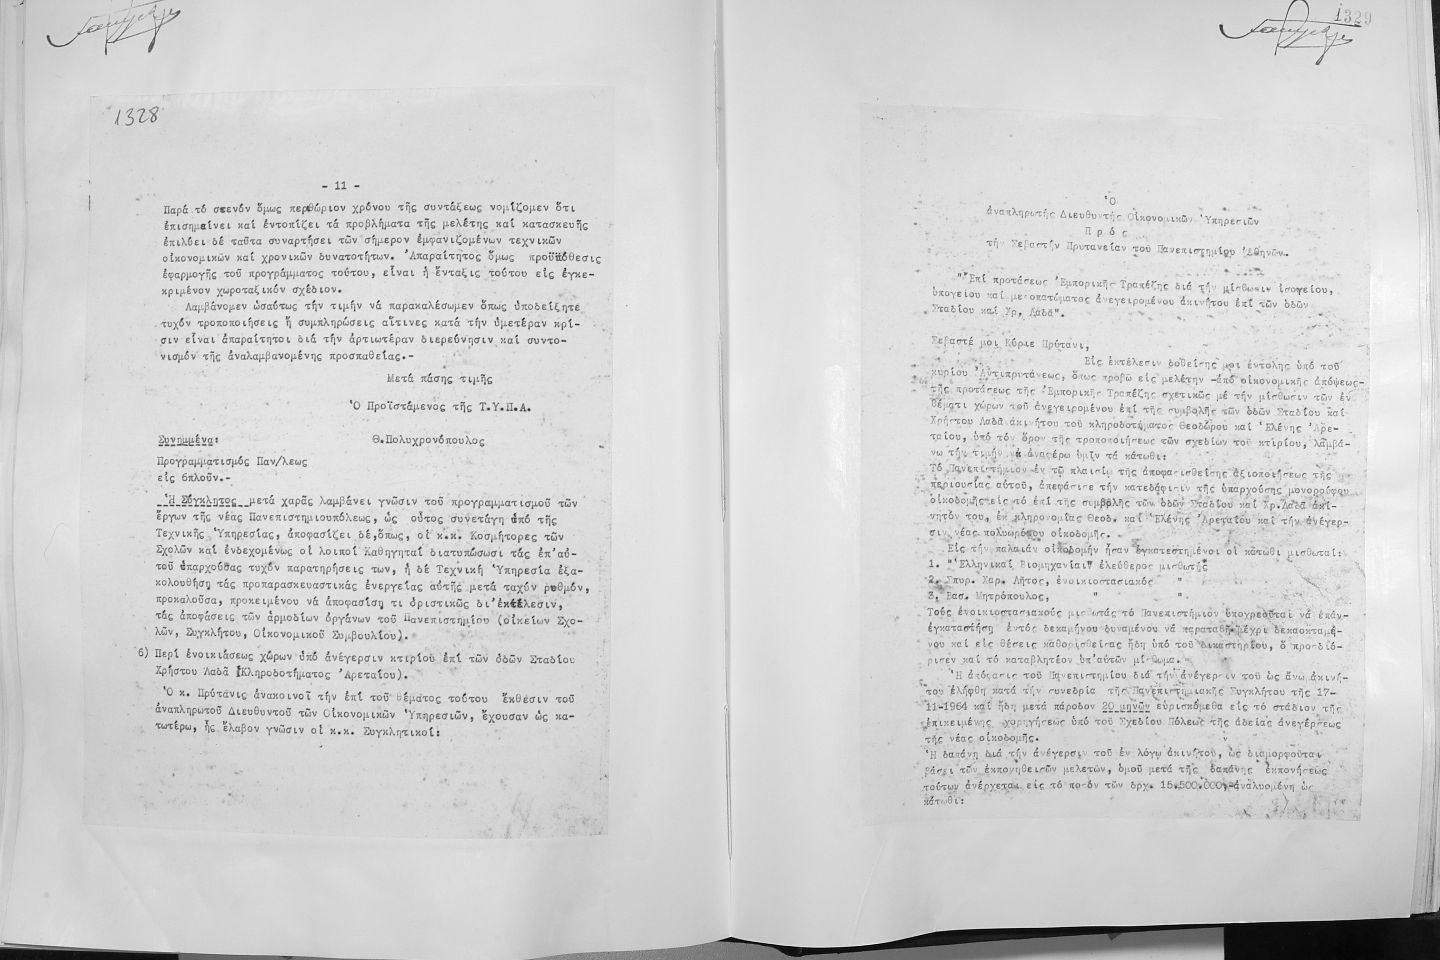 1328
- 11 -
Παρά τό στενόν ὅμως περιθώριον χρόνου τῆς συντάξεως νομίζομεν ὅτι
ἐπισημαίνει καί ἐντοπίζει τά προβλήματα τῆς μελέτης καί κατασκευῆς
ἐπιλύει δέ ταῦτα συναρτήσει τῶν σήμερον ἐμφανιζομένων τεχνικῶν
οἰκονομικῶν καί χρονικῶν δυνατοτήτων. Ἀπαραίτητος ὅμως προϋπόθεσις
ἐφαρμογῆς τοῦ προγράμματος τούτου, εἶναι ἡ ἔνταξις τούτου εἰς ἐγκε-
κριμένον χωροταξικόν σχέδιον.
Λαμβάνομεν ὡσαύτως τήν τιμήν νά παρακαλέσωμεν ὅπως ὑποδείξητε
τυχόν τροποποιήσεις ἤ συμπληρώσεις αἵτινες κατά τήν ὑμετέραν κρί-
σιν εἶναι ἀπαραίτητοι διά τήν ἀρτιωτέραν διερεύνησιν καί συντο-
νισμόν τῆς ἀναλαμβανομένης προσπαθείας.-
Μετά πάσης τιμῆς
Ὁ Προϊστάμενος τῆς Τ.Υ.Π.Α.
Συνημμένα: Θ.Πολυχρονόπουλος
Προγραμματισμός Παν/λεως
εἰς 6πλοῦν.-
Ἡ Σύγκλητος μετά χαρᾶς λαμβάνει γνῶσιν τοῦ προγραμματισμοῦ τῶν
ἔργων τῆς νέας Πανεπιστημιουπόλεως, ὡς οὗτος συνετάγη ὑπό τῆς
Τεχνικῆς Ὑπηρεσίας, ἀποφασίζει δέ, ὅπως, οἱ κ.κ. Κοσμήτορες τῶν
Σχολῶν καί ἐνδεχομένως οἱ λοιποί Καθηγηταί διατυπώσωσι τάς ἐπ'αὐ-
τοῦ ὑπαρχούσας τυχόν παρατηρήσεις των, ἡ δέ Τεχνική Ὑπηρεσία ἐξα-
κολουθήσῃ τάς προπαρασκευαστικάς ἐνεργείας αὐτῆς μετά ταχύν ρυθμόν,
προκαλοῦσα, προκειμένου νά ἀποφασίσῃ τι ὁριστικῶς δι'ἐκτέλεσιν,
τάς ἀποφάσεις τῶν ἁρμοδίων ὀργάνων τοῦ Πανεπιστημίου (οἰκείων Σχο-
λῶν, Συγκλήτου, Οἰκονομικοῦ Συμβουλίου).
6) Περί ἐνοικιάσεως χώρων ὑπό ἀνέγερσιν κτιρίου ἐπί τῶν ὁδῶν Σταδίου
Χρήστου Λαδᾶ (Κληροδοτήματος Ἀρεταίου).
Ὁ κ. Πρύτανις ἀνακοινοῖ τήν ἐπί τοῦ θέματος τούτου ἔκθεσιν τοῦ
ἀναπληρωτοῦ Διευθυντοῦ τῶν Οἰκονομικῶν Ὑπηρεσιῶν, ἔχουσαν ὡς κα-
τωτέρω, ἧς ἔλαβον γνῶσιν οἱ κ.κ. Συγκλητικοί:
1329
Ὁ
ἀναπληρωτής Διευθυντής Οἰκονομικῶν Ὑπηρεσιῶν
Πρός
τήν Σεβαστήν Πρυτανείαν τοῦ Πανεπιστημίου Ἀθηνῶν.
"Ἐπί προτάσεως Ἐμπορικῆς Τραπέζης διά τήν μίσθωσιν ἰσογείου,
ὑπογείου καί μεσοπατώματος ἀνεγειρομένου ἀκινήτου ἐπί τῶν ὁδῶν
Σταδίου καί Χρ. Λαδᾶ".
Σεβαστέ μοι Κύριε Πρύτανι,
Εἰς ἐκτέλεσιν δοθείσης μοι ἐντολῆς ὑπό τοῦ
κυρίου Ἀντιπρυτάνεως, ὅπως προβῶ εἰς μελέτην -ἀπό οἰκονομικῆς ἀπόψεως-
τῆς προτάσεως τῆς Ἐμπορικῆς Τραπέζης σχετικῶς μέ τήν μίσθωσιν τῶν ἐν
θέματι χώρων τοῦ ἀνεγειρομένου ἐπί τῆς συμβολῆς τῶν ὁδῶν Σταδίου καί
Χρήστου Λαδᾶ ἀκινήτου τοῦ κληροδοτήματος Θεοδώρου καί Ἑλένης Ἀρε-
ταίου, ὑπό τόν ὅρον τῆς τροποποιήσεως τῶν σχεδίων τοῦ κτιρίου, λαμβά-
νω τήν τιμήν νά ἀναφέρω ὑμῖν τά κάτωθι:
Τό Πανεπιστήμιον ἐν τῷ πλαισίῳ τῆς ἀποφασισθείσης ἀξιοποιήσεως τῆς
περιουσίας αὐτοῦ, ἀπεφάσισε τήν κατεδάφισιν τῆς ὑπαρχούσης μονορόφου
οἰκοδομῆς εἰς τό ἐπί τῆς συμβολῆς τῶν ὁδῶν Σταδίου καί Χρ.Λαδᾶ ἀκί-
νητόν του, ἐκ κληρονομίας Θεοδ. καί Ἑλένης Ἀρεταίου καί τήν ἀνέγερ-
σιν νέας πολυωρόφου οἰκοδομῆς.
Εἰς τήν παλαιάν οἰκοδομήν ἦσαν ἐγκατεστημένοι οἱ κάτωθι μισθωταί:
1. "Ἑλληνικαί Βιομηχανίαι" ἐλεύθερος μισθωτής
2. Σπυρ. Χαρ. Λῆτος, ἐνοικιοστασιακός "
3. Βασ. Μητρόπουλος, " ".
Τούς ἐνοικιοστασιακούς μισθωτάς τό Πανεπιστήμιον ὑποχρεοῦται νά ἐπαν-
εγκαταστήσῃ ἐντός δεκαμήνου δυναμένου νά παραταθῇ μέχρι δεκαοκταμή-
νου καί εἰς θέσεις καθορισθείσας ἤδη ὑπό τοῦ δικαστηρίου, ὅ προσδιό-
ρισεν καί τό καταβλητέον ὑπ'αὐτῶν μίσθωμα.
Ἡ ἀπόφασις τοῦ Πανεπιστημίου διά τήν ἀνέγερσιν τοῦ ὡς ἄνω ἀκινή-
του ἐλήφθη κατά τήν συνεδρία τῆς Πανεπιστημιακῆς Συγκλήτου τῆς 17-
11-1964 καί ἤδη μετά πάροδον 20 μηνῶν εὑρισκόμεθα εἰς τό στάδιον τῆς
ἐπικειμένης χορηγήσεως ὑπό τοῦ Σχεδίου Πόλεως τῆς ἀδείας ἀνεγέρσεως
τῆς νέας οἰκοδομῆς.
Ἡ δαπάνη διά τήν ἀνέγερσιν τοῦ ἐν λόγῳ ἀκινήτου, ὡς διαμορφοῦται
βάσει τῶν ἐκπονηθεισῶν μελετῶν, ὁμοῦ μετά τῆς δαπάνης ἐκπονήσεως
τούτων ἀνέρχεται εἰς τό ποσόν τῶν δρχ. 15.500.000.-ἀναλυομένη ὡς
κάτωθι: